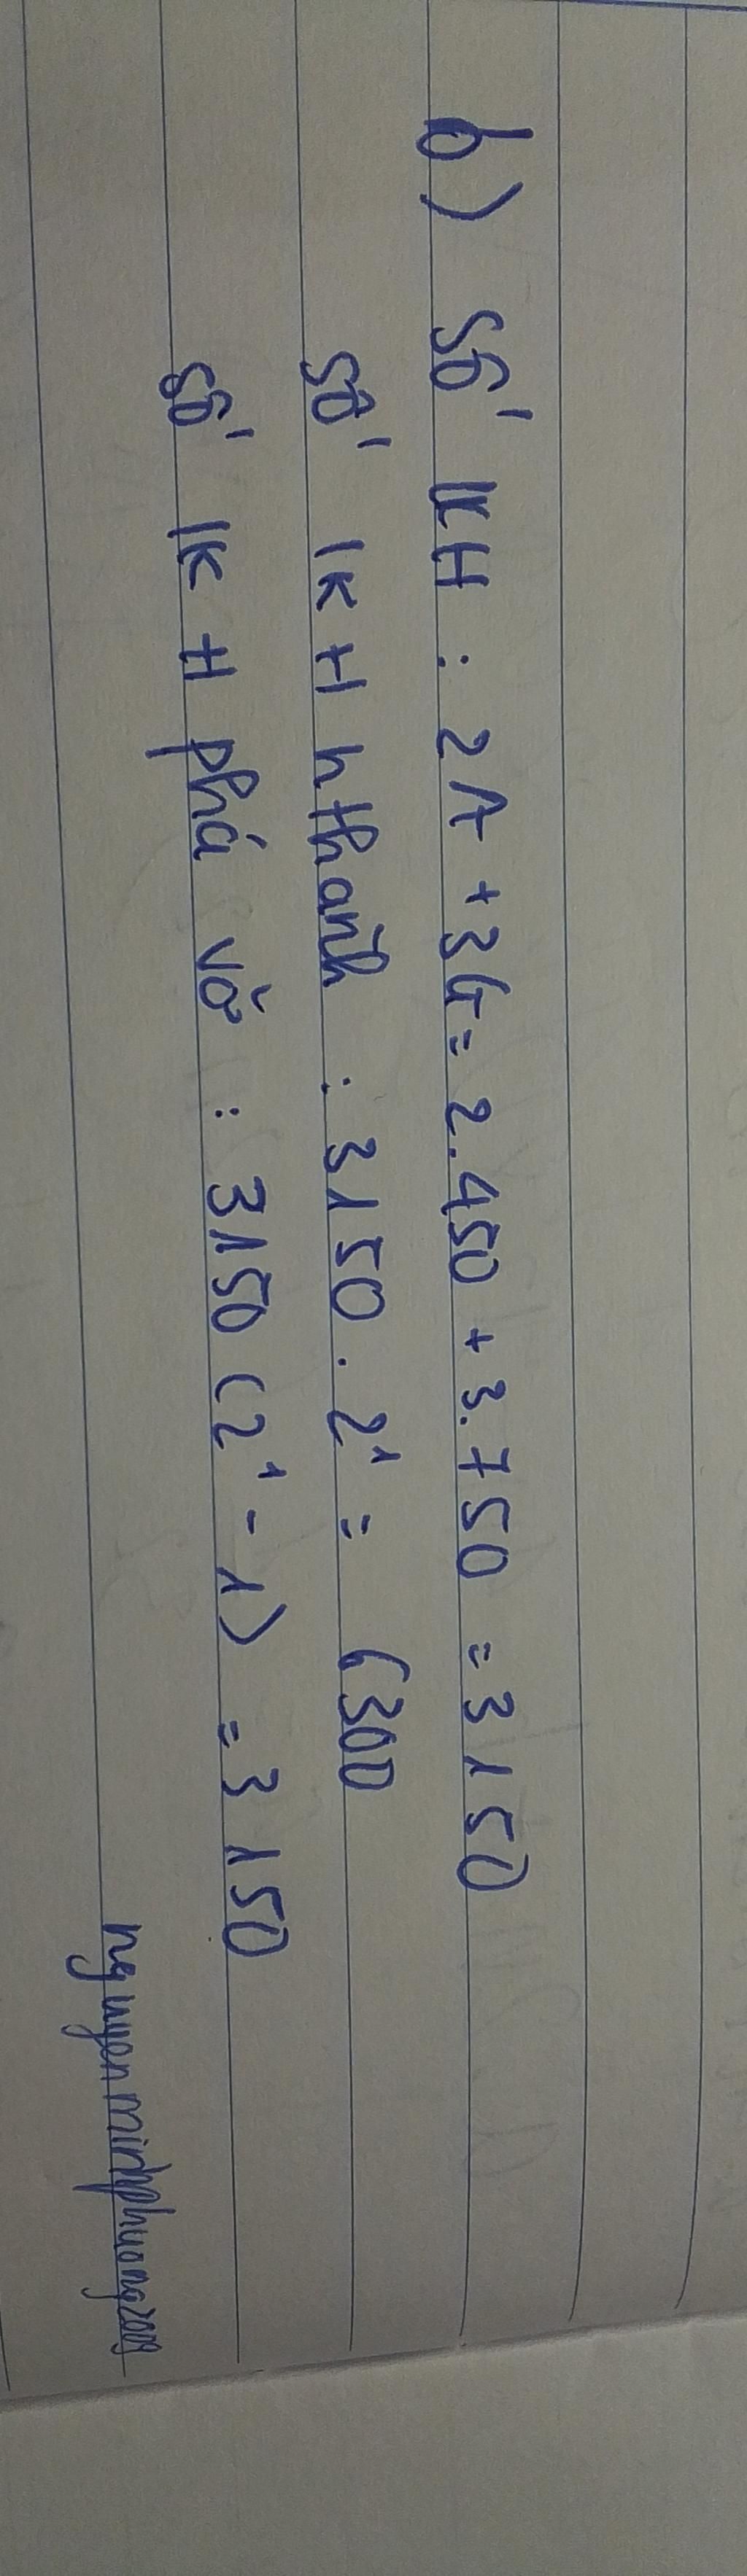 b) Số lk H : 2A + 3G = 2.450 + 3.750 = 3150
Số lk H hthành : 3150 . 2¹ = 6300
Số lk H phá vỡ : 3150 (2¹ - 1) = 3150
nguyenminhphuong2009